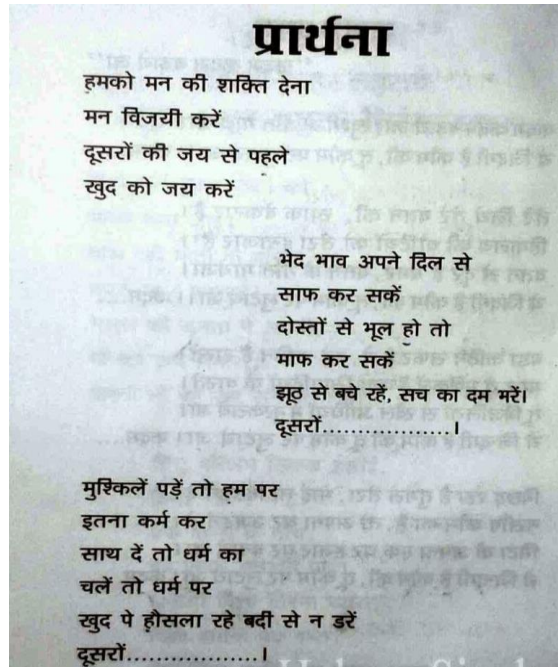 प्रार्थना
हमको मन की शक्ति देना
मन विजयी करें
दूसरों की जय से पहले
खुद को जय करें
भेद भाव अपने दिल से
साफ कर सकें
दोस्तों से भूल हो तो
माफ कर सकें
झूठ से बचे रहें, सच का दम भरें।
दूसरों..................।
मुश्किलें पड़ें तो हम पर
इतना कर्म कर
साथ दें तो धर्म का
चलें तो धर्म पर
खुद पे हौसला रहे बदी से न डरें
दूसरों..................।